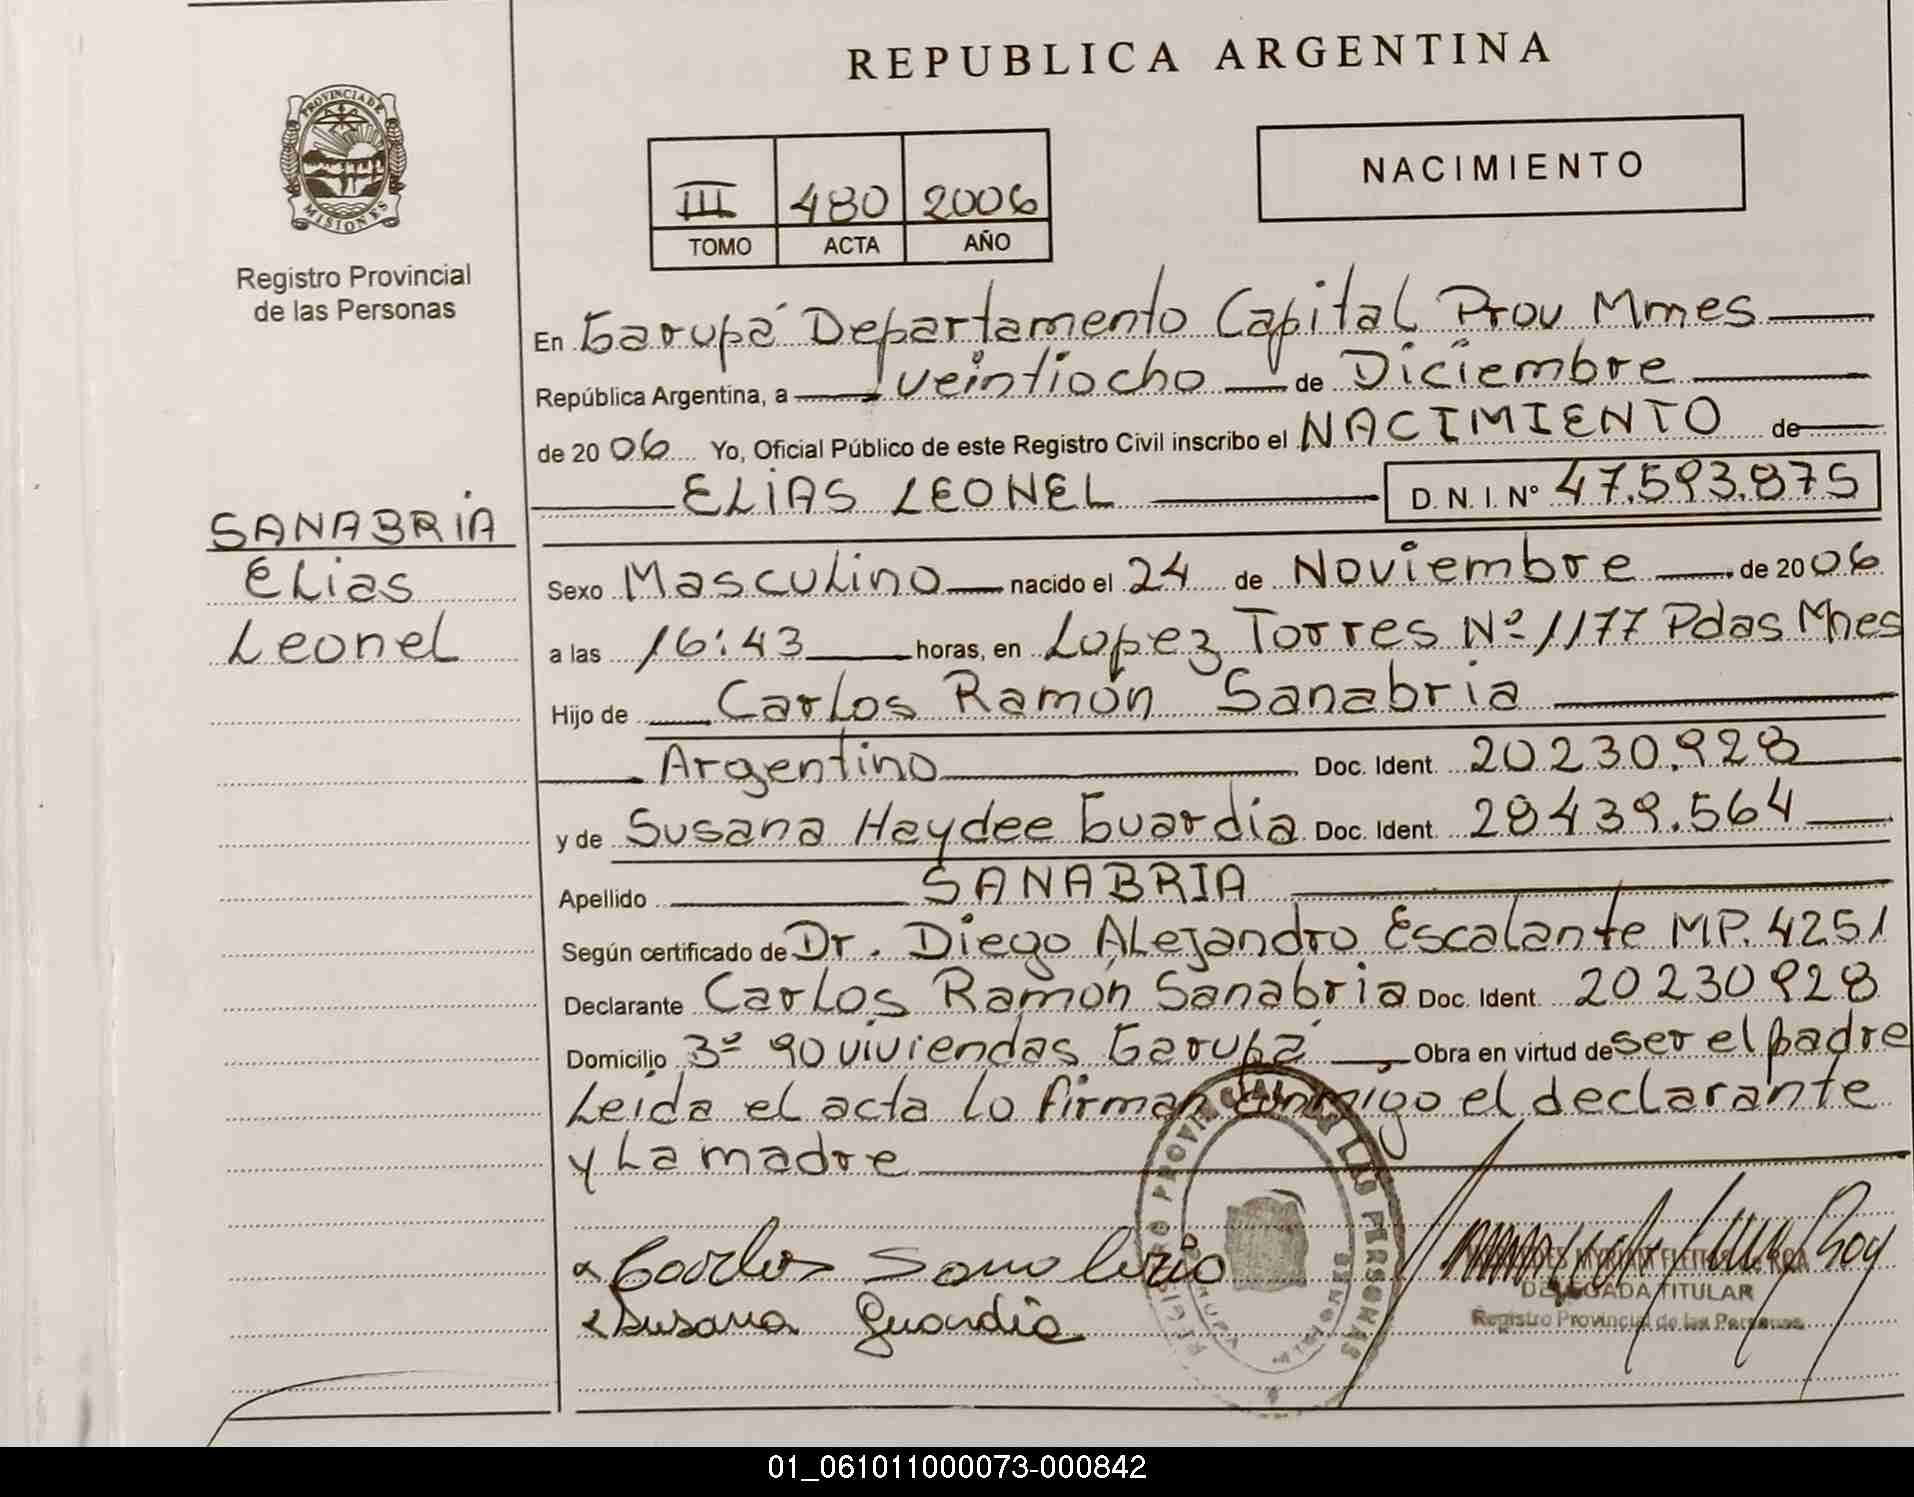 REPUBLICA ARGENTINA
PROVINCIA DE
MISIONES
Registro Provincial
de las Personas
III 480 2006
TOMO ACTA AÑO
NACIMIENTO
En Garupá Departamento Capital Prov Mnnes
República Argentina, a veintiocho de Diciembre
de 2006 Yo, Oficial Público de este Registro Civil inscribo el NACIMIENTO de
ELIAS LEONEL D. N. I. Nº 47.593.875
SANABRIA
Elias
Leonel
Sexo Masculino nacido el 24 de Noviembre de 2006
a las 16:43 horas, en Lopez Torres Nº 1177 Pdas Mnes
Hijo de Carlos Ramón Sanabria
Argentino Doc. Ident. 20230.928
y de Susana Haydee Guardia Doc. Ident. 28439.564
Apellido SANABRIA
Según certificado de Dr. Diego Alejandro Escalante MP. 4251
Declarante Carlos Ramón Sanabria Doc. Ident. 20230928
Domicilio 3º 90 viviendas Garupá Obra en virtud de ser el padre
Leida el acta lo firman conmigo el declarante
y la madre
Carlos Sanabria
Susana Guardia
DELEGADA TITULAR
Registro Provincial de las Personas
01_061011000073-000842